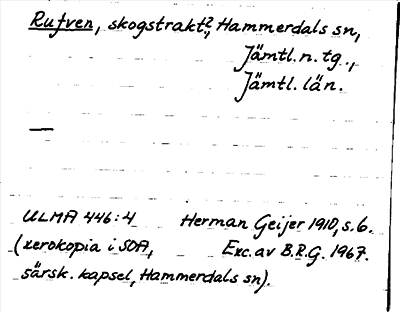 Rufven, skogstrakt?, Hammerdals sn,
Jämtl. n. tg.,
Jämtl. län.
—
ULMA 446:4 Herman Geijer 1910, s. 6.
(xerokopia i SOA, Exc. av B.R.G. 1967.
särsk. kapsel, Hammerdals sn).